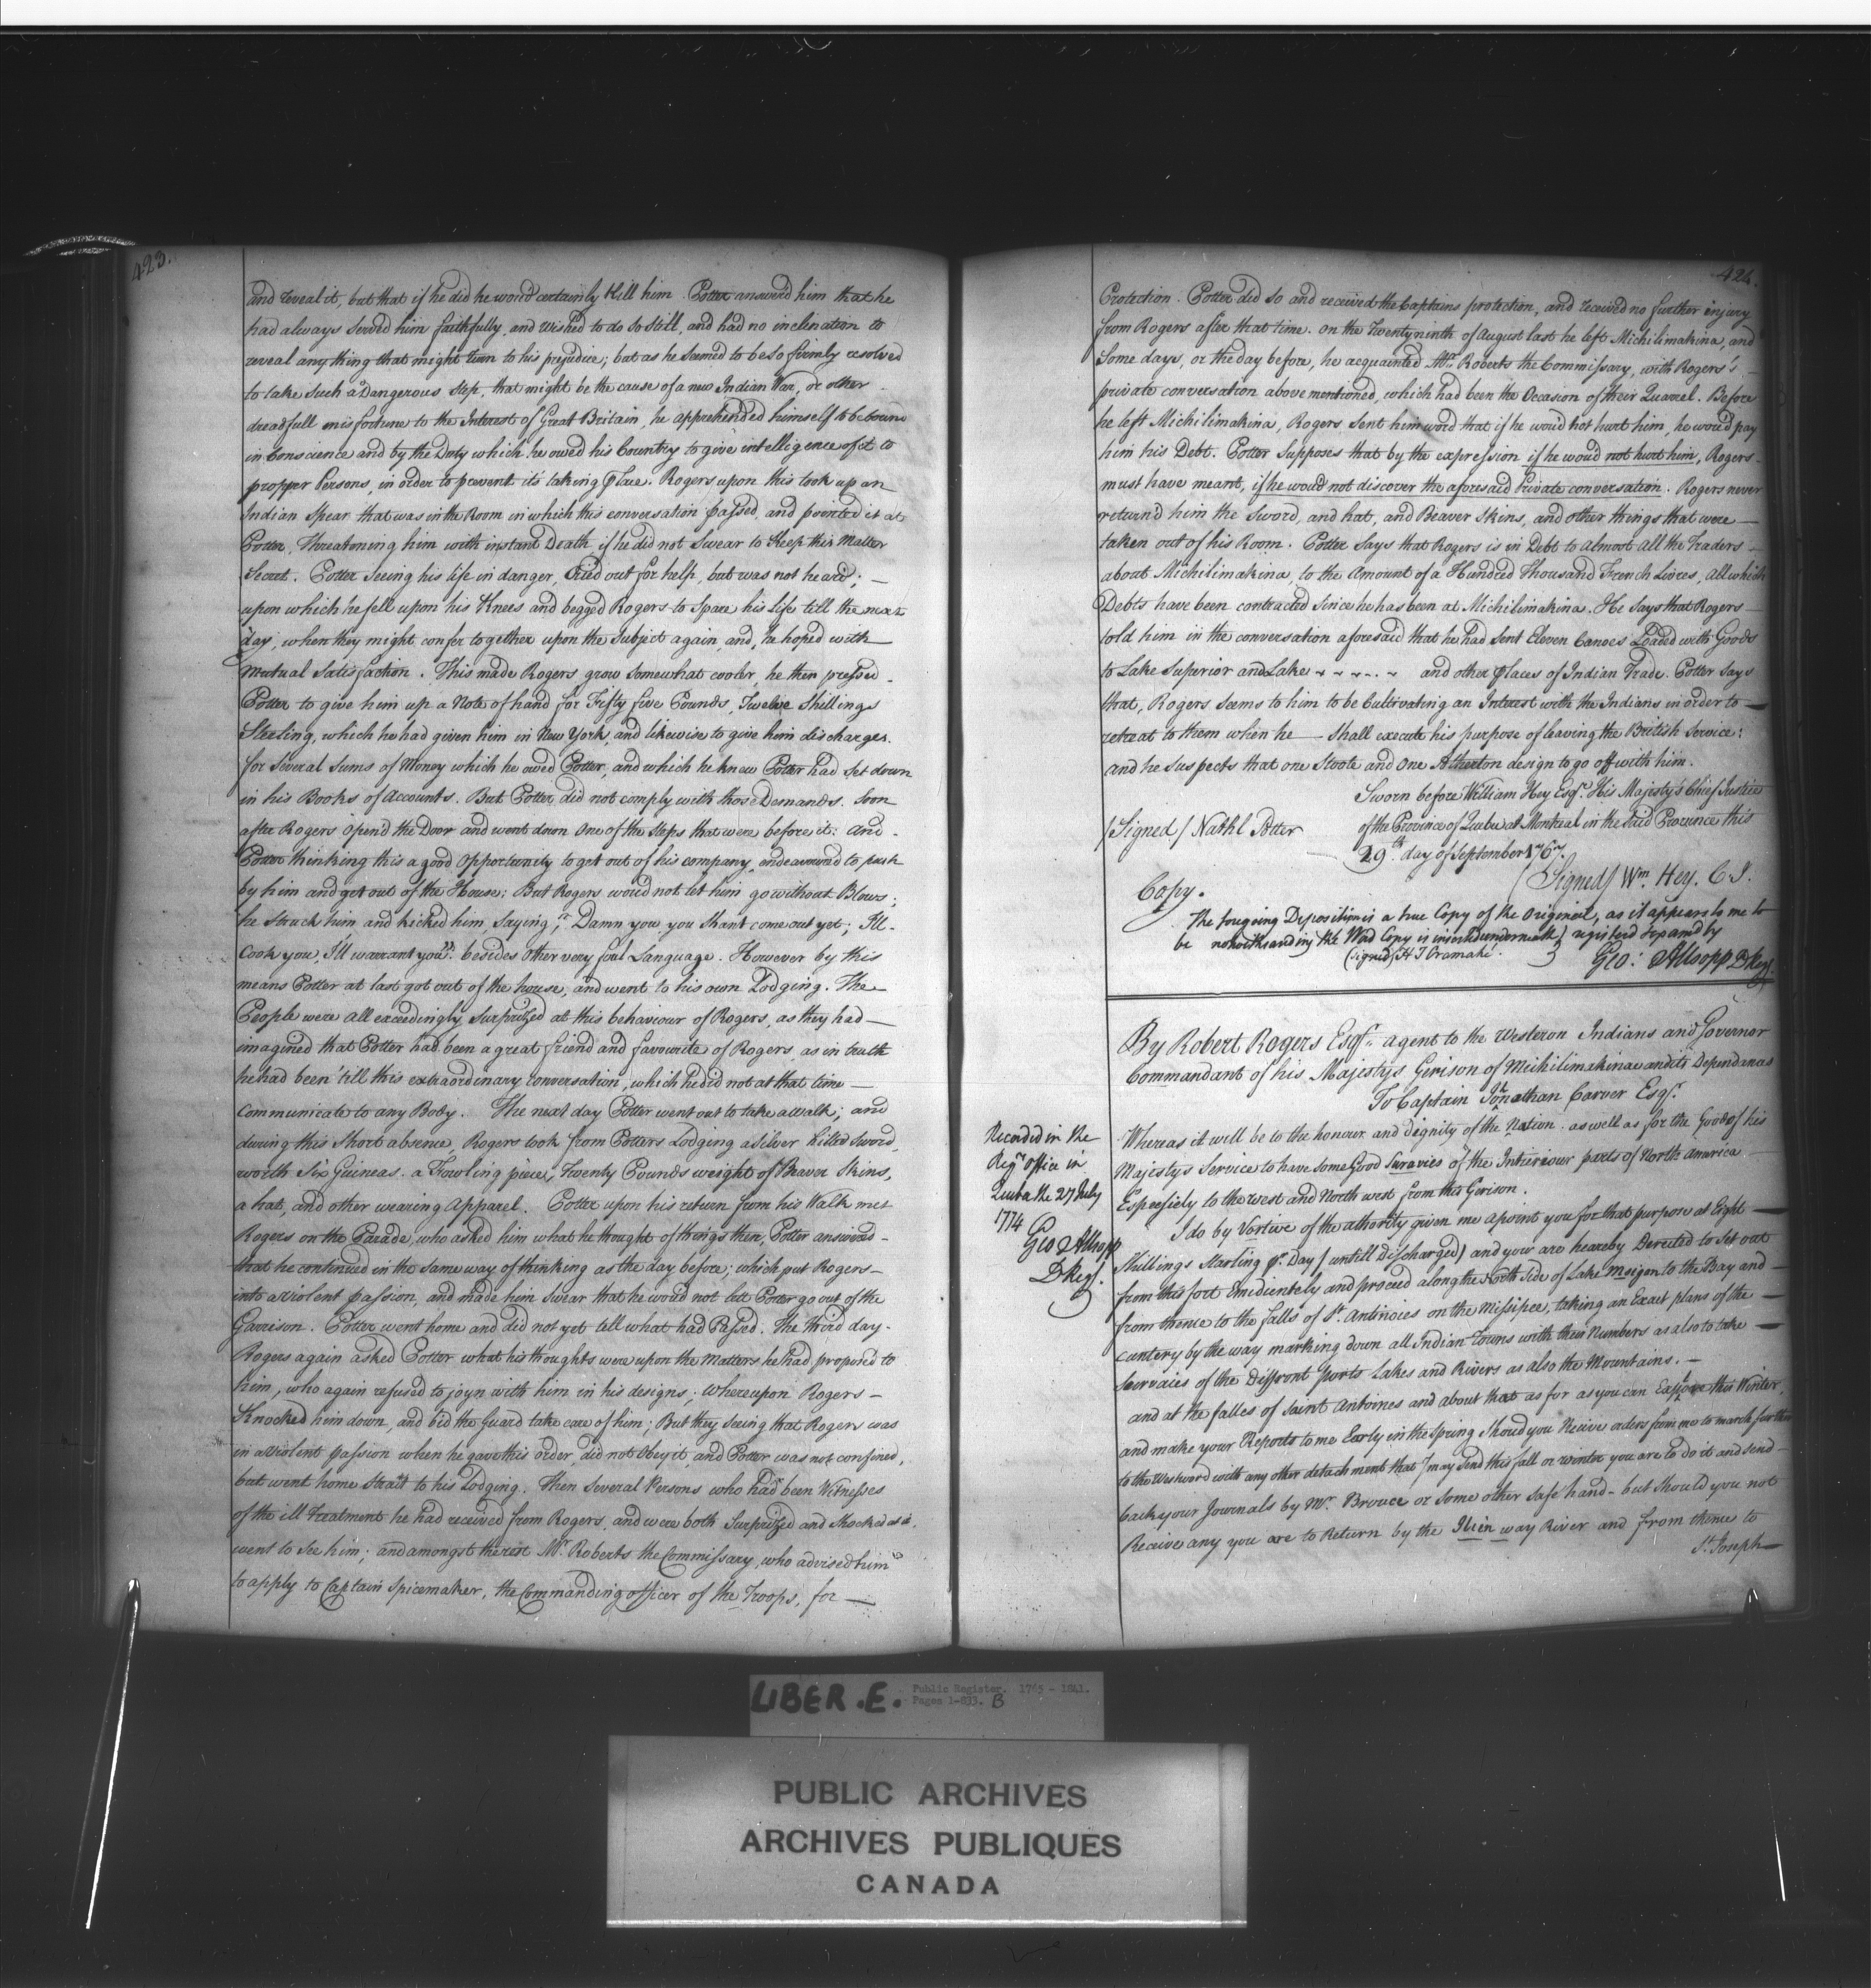 423.
and reveal it, but that if he did he would certainly Kill him. Potter answered him that he
had always served him faithfully, and wished to do so still, and had no inclination to
reveal any thing that might turn to his prejudice; but as he seemed to be so firmly resolved
to take such a Dangerous Step, that might be the cause of a new Indian War, or other
dreadfull misfortune to the Interest of Great Britain, he apprehended himself to be bound
in Conscience and by the Duty which he owed his Country to give intelligence of it to
propper Persons, in order to prevent it's taking place. Rogers upon this took up an
Indian Spear that was in the Room in which this conversation passed, and pointed it at
Potter, Threatening him with instant Death if he did not Swear to Keep this Matter
Secret. Potter Seeing his life in danger, Cried out for help, but was not heard; —
upon which he fell upon his Knees and begged Rogers to Spare his Life till the next
day, when they might confer together upon the Subject again, and, he hoped with —
Mutual Satisfaction. This made Rogers grow somewhat cooler, he then pressed -
Potter to give him up a Note of hand for Fifty five Pounds, Twelve Shillings
Sterling, which he had given him in New York, and likewise to give him discharges
for Several Sums of Money which he owed Potter, and which he knew Potter had set down
in his Books of Accounts. But Potter did not comply with those Demands. Soon
after Rogers open'd the Door and went down One of the Steps that were before it: and -
Potter thinking this a good opportunity to get out of his company, endeavoured to push
by him and get out of the House: But Rogers would not let him go without Blows;
he Struck him, and kicked him, Saying, "Damn you, you Shant come out yet; I'll -
Cook you, I'll warrant you": besides other very foul Language. However by this
means Potter at last got out of the house, and went to his own Lodging. The —
People were all exceedingly Surprized at this behaviour of Rogers, as they had —
imagined that Potter had been a great friend and favourite of Rogers, as in truth
he had been 'till this extraordinary conversation, which he did not at that time —
Communicate to any Body. The next day Potter went out to take a walk; and
during this Short absence, Rogers took from Potters Lodging a Silver hilted Sword,
worth Six Guineas. a Fowling piece, Twenty Pounds weight of Beaver Skins,
a hat, and other wearing Apparel. Potter upon his return from his Walk met
Rogers on the Parade, who asked him what he thought of things then, Potter answered -
that he continued in the same way of thinking as the day before; which put Rogers —
into a violent passion, and made him Swear that he would not let Potter go out of the
Garrison. Potter went home and did not yet tell what had Passed. The Third day -
Rogers again asked Potter what his thoughts were upon the Matters he had propos'd to
him, who again refused to joyn with him in his designs; Whereupon Rogers —
Knocked him down, and bid the Guard take care of him; But they Seeing that Rogers was
in a violent passion when he gave this order, did not Obey it, and Potter was not confined,
but went home Strait to his Lodging. Then Several Persons who had been Witnesses
of the ill Treatment he had received from Rogers, and were both Surprized and Shocked at it,
went to See him; and amongst the rest Mr. Roberts the Commissary, who advised him
to apply to Captain Spicemaker, the Commanding officer of the Troops, for —
424.
Protection. Potter did so and received the Captains protection, and received no further injury
from Rogers after that time. On the Twenty ninth of August last he left Michilimakina, and
Some days, or the day before, he acquainted Mr. Roberts the Commissary, with Rogers's —
private conversation above mentioned, which had been the Occasion of their Quarrel. Before
he left Michilimakina, Rogers Sent him word that if he would not hurt him, he would pay
him his Debt. Potter Supposes that by the expression if he would not hurt him, Rogers -
must have meant, if he would not discover the aforesaid Private conversation. Rogers never
return'd him the Sword, and hat, and Beaver Skins, and other things that were —
taken out of his Room. Potter Says that Rogers is in Debt to Almost All the Traders —
about Michilimakina, to the Amount of a Hundred Thousand French Livres, All which
Debts have been contracted Since he has been at Michilimakina. He Says that Rogers —
told him in the conversation aforesaid that he had Sent Eleven Canoes Loaded with Goods
to Lake Superior and Lake - - - - - - and other places of Indian Trade. Potter Says
that, Rogers seems to him to be Cultivating an Interest with the Indians in order to —
retreat to them when he — Shall execute his purpose of leaving the British Service:
and he Suspects that one Stoote and one Atherton design to go off with him.
Sworn before William Hey Esqr. His Majesty's Chief Justice
/Signed/ Nathl Potter of the Province of Quebec at Montreal in the Said Province this
29th. day of September 1767.
/Signed/ Wm. Hey. C. J.
Copy.
The foregoing Deposition is a true Copy of the Original, as it appears to me to
be notwithstanding the Word Copy is inserted underneath) registerd & examd by
(signed) H T Cramahé. Geo: Allsopp D Regr.
By Robert Rogers Esqr. agent to the Westeron Indians and Governor
Commandant of his Majestys Girison of Michilimakinac and its Dependancies
To Captain Jonathan Carver Esqr.
Recorded in the
Regrs. office in
Quebec the 27 July
1774
Geo Allsopp
D Regr.
Whereas it will be to the honour and Dignity of the Nation as well as for the Good of his
Majestys Service to have some Good Survaies of the Interiour parts of North America —
Especsiely to the west and North west from this Gerison.
I do by Vertiue of the athority given me apoint you for that purpose at Eight —
Shillings Starling pr. Day / untill Discharged) and your are heareby Derected to Set out
from this fort Emidientely and proceed along the North side of Lake Msigon to the Bay and —
from thence to the falls of St. Antinoies on the Missipee, taking an Exact plans of the —
cuntery by the way marking down all Indian Towns with their Numbers as also to take —
Sorvaies of the Diffront ports Lakes and Rivers as also the Mountains. —
and at the falles of Saint Antoines and about that as for as you can Explore this Winter,
and make your Reports to me Early in the Spring Shoud you Receive orders from me to march further
to the Westward with any other detachment that I may Send this fall or winter you are to do it and send -
back your Journals by Mr. Brouce or some other safe hand - but should you not
Receive any you are to Return by the Ilein way River and from thence to
St. Joseph —
LIBER. E. Public Register. 1765 - 1841.
Pages 1-833. B
PUBLIC ARCHIVES
ARCHIVES PUBLIQUES
CANADA